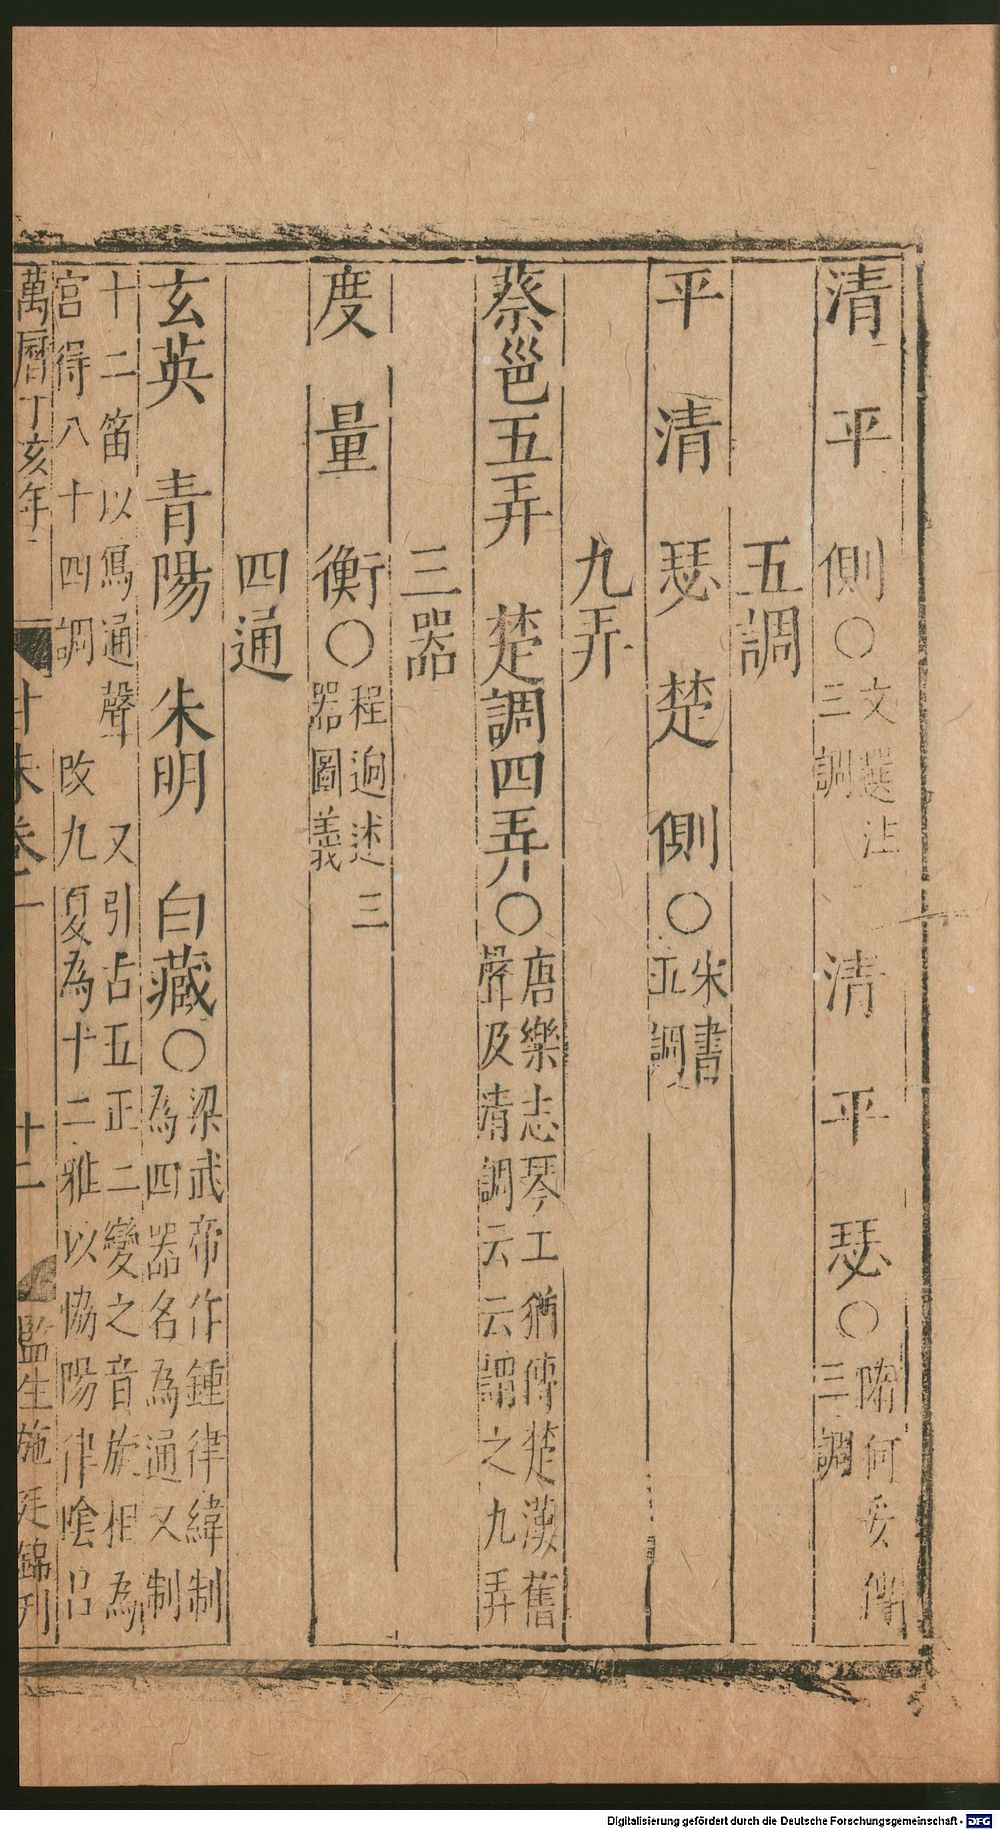 清平側○文選注三調清平瑟○隋何妥傳三調
五調
平清瑟楚側○宋書五調
九弄
蔡邕五弄楚調四弄○唐樂志琴工猶傳楚漢舊聲及清調云云謂之九弄
三器
度量衡○程迥述三器圖義
四通
玄英青陽朱明白藏○梁武帝作鍾律緯制為四器名為通又制
十二笛以寫通聲又引占五正二變之音旋相為
宮得八十四調改九夏為十二雅以恊陽律陰呂
萬曆丁亥年
卷二
十二
監生施廷錦刊
Digitalisierung gefördert durch die Deutsche Forschungsgemeinschaft - DFG